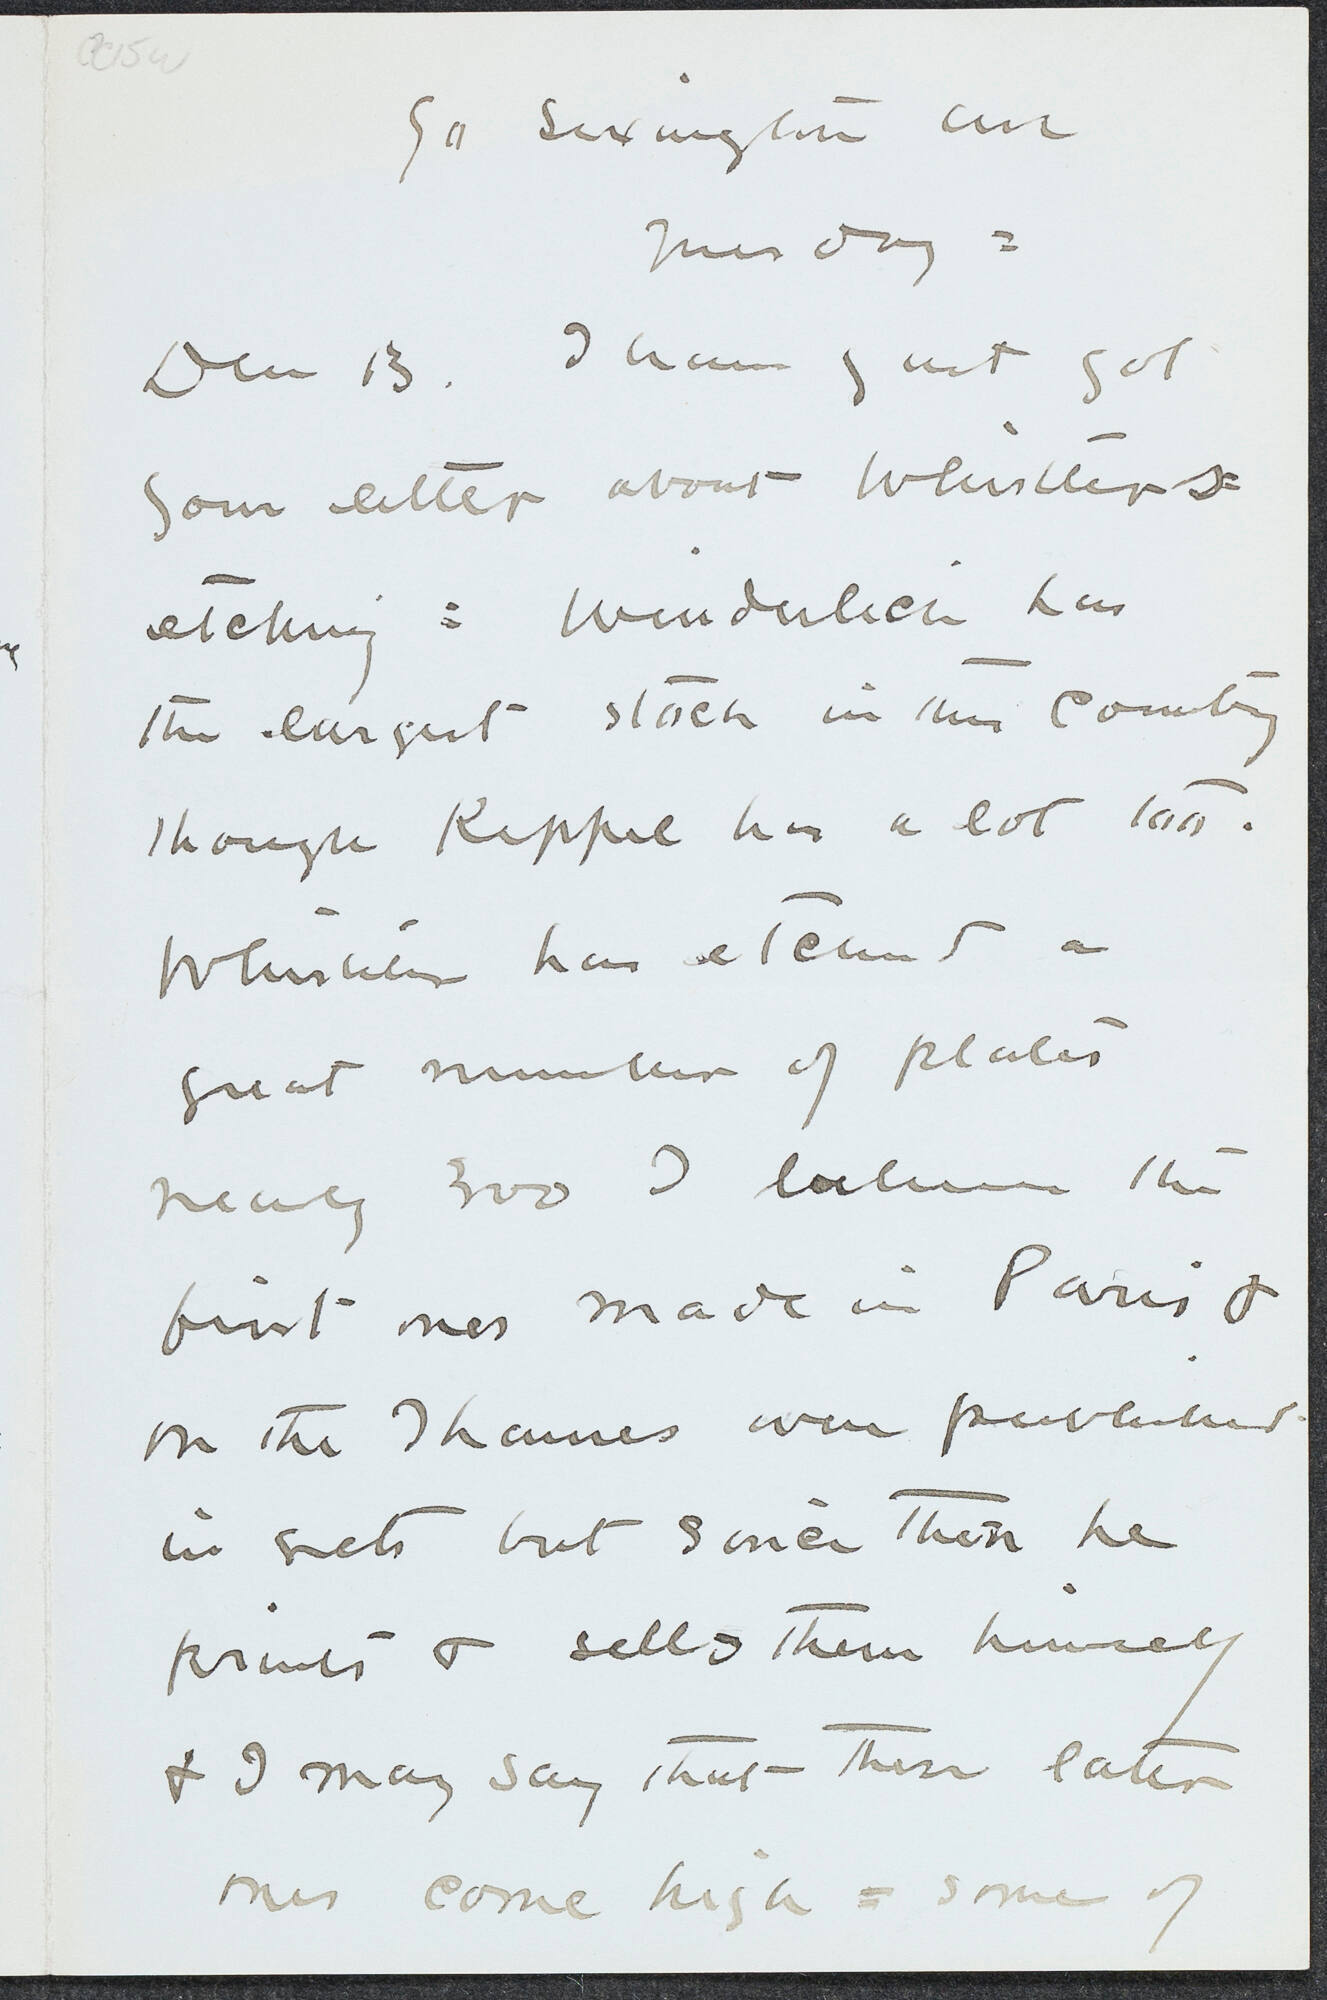 50 Lexington Ave
Tuesday =
Dear B. I have just got
your letter about Whistlers
etching = Wunderlich has
the largest stock in this country
though Keppel has a lot too.
Whistler has etched a
great number of plates
nearly 300 I believe the
first ones made in Paris &
on the Thames were published
in sets but since then he
prints & sells them himself
& I may say that these later
ones come high = some of